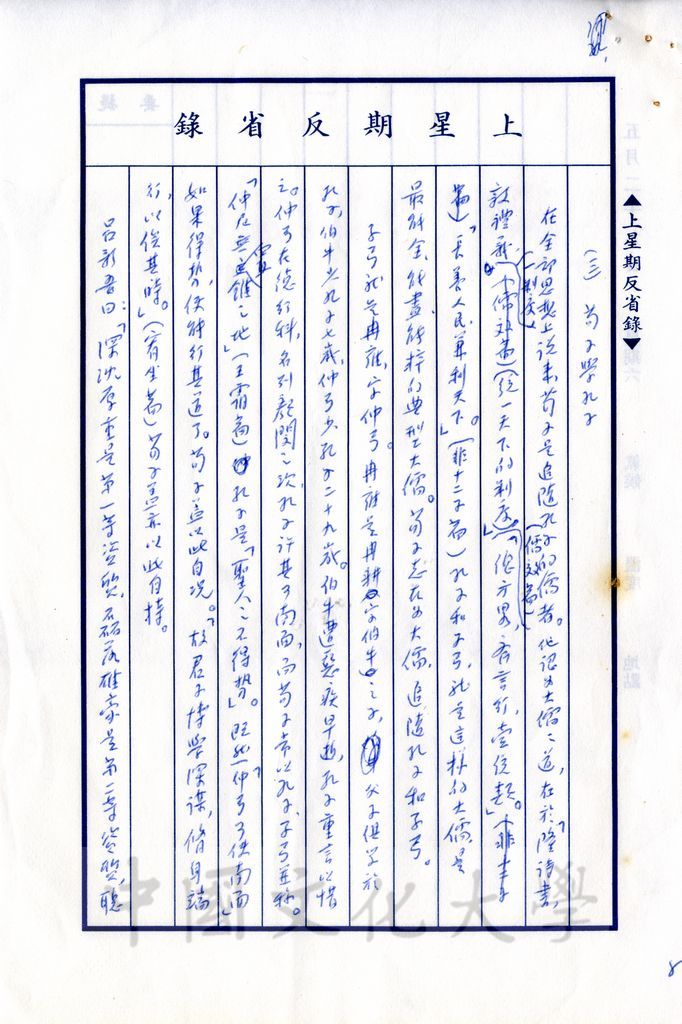 上星期反省錄
▲上星期反省錄▼
(三) 荀子學孔子
在全部思想上說來荀子是追隨孔子的儒者。他認為大儒之道,在於「隆詩書,
敦禮義」(儒效篇)「一制度」(統一天下的制度)「佐方略,齊言行,壹統類。」(非十二子
篇)「長養人民,兼利天下。」(非十二子篇)孔子和子弓,就是這樣的大儒,是
最能全、能盡、能粹的典型大儒。荀子志在為大儒,追隨孔子和子弓。
子弓就是冉雍,字仲弓。冉雍是冉耕字伯牛之子,父子俱學於
孔子,伯牛少孔子七歲,仲弓少孔子二十九歲。伯牛遭惡疾早逝,孔子重言以惜
之。仲弓在德行科,名列顏閔之次,孔子許其可南面,而荀子常以孔子、子弓並稱。
「仲尼無置錐之地」(王霸篇)孔子是「聖人之不得勢」。既然「仲弓可使南面」
如果得勢,便能行其道了。荀子蓋以此自况。「故君子博學深謀,脩身端
行,以俟其時。」(宥坐篇)荀子蓋亦以此自持。
呂新吾曰:「深沈厚重是第一等資質,磊落雄豪是第二等資質,聰
8
中國文化大學